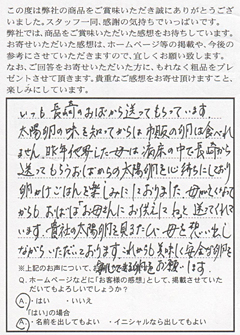 この度は弊社の商品をご賞味いただき誠にありがとうご
ざいました。スタッフ一同、感謝の気持ちでいっぱいです。
弊社では、商品をご賞味いただいた感想をお待ちしています。
お寄せいただいた感想は、ホームページ等の掲載や、今後の
参考にさせていただきますので、宜しくお願い致します。
なお、ご回答をお寄せいただいた方に、もれなく粗品をプレ
ゼントさせて頂きます。貴重なご感想をお寄せ頂けますこと、
楽しみにしています。
いつも長崎のおばから送ってもらっています。
太陽卵の味を知ってからは市販の卵は食べれ
ません。昨年他界した母は病床の中で長崎から
送ってもらうおばからの太陽卵を心待ちにしており
卵かけごはんを楽しみにしておりました。母が亡くなって
からも、おばは「お母さんにお供えして」と送ってくれて
います。貴社の太陽卵を見るたび母を思い出し
ながらいただいております。これからも美味しく安全な卵を
※上記のお声について、
お願いします。
Q.ホームページなどに「お客様の感想」として、掲載させてい
ただいてもよろしいでしょうか?
A.・はい ・いいえ
「はい」の場合
A.・名前を出してもよい ・イニシャルなら出してもよい